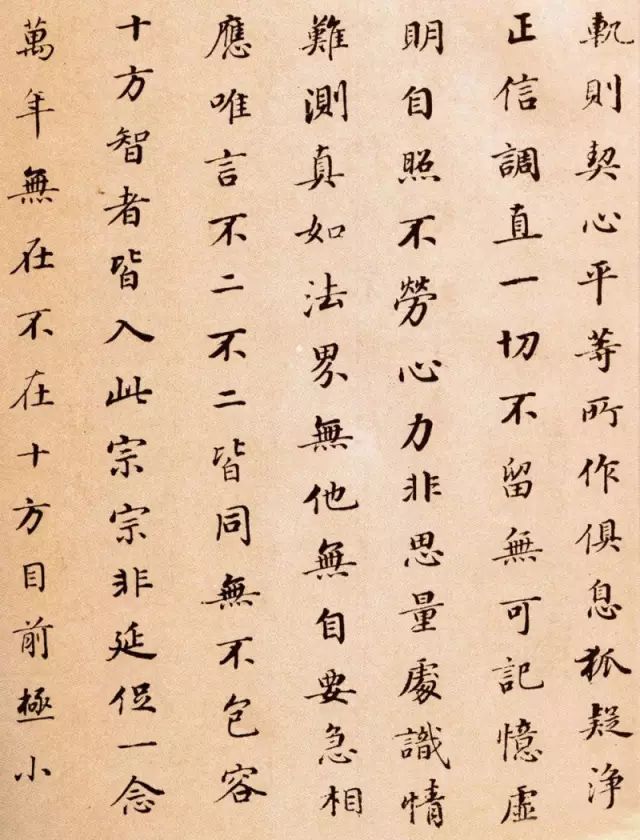 軌則契心平等所作俱息狐疑浄
正信調直一切不留無可記憶虛
明自照不勞心力非思量處識情
難測真如法界無他無自要急相
應唯言不二不二皆同無不包容
十方智者皆入此宗宗非延促一念
萬年無在不在十方目前極小